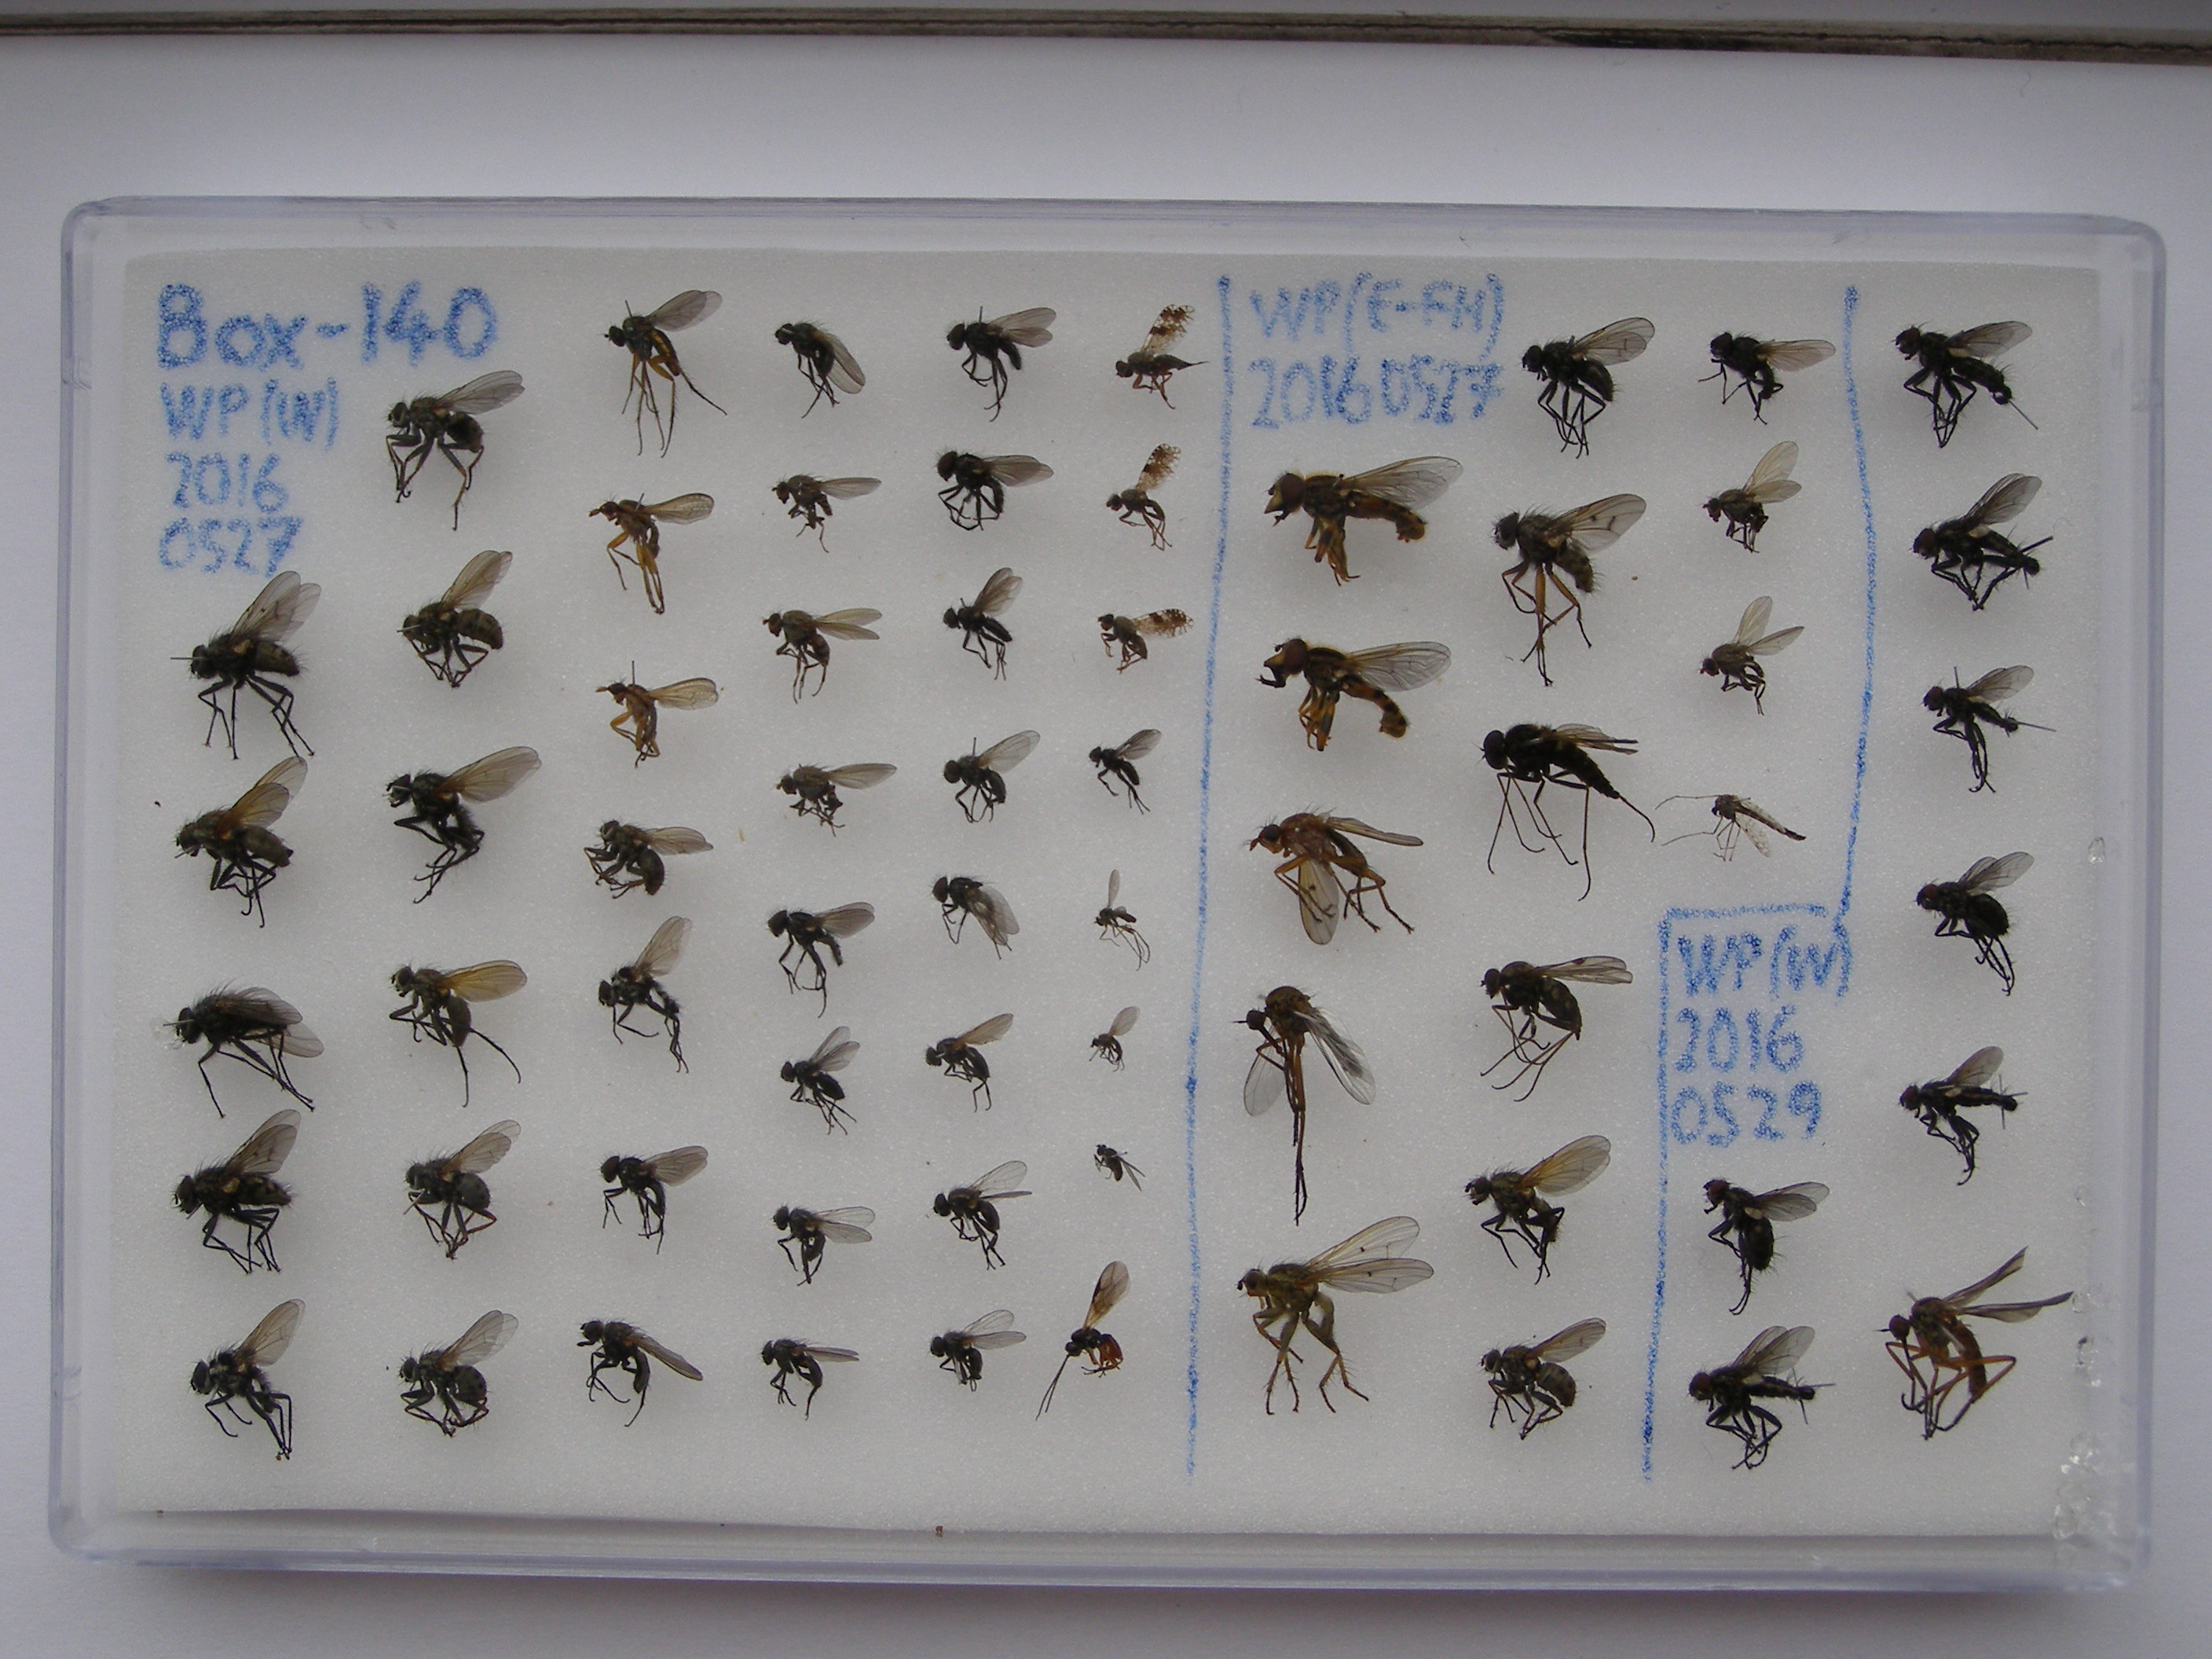 Box-140
WP(W)
2016
0527
WP(E-FH)
20160527
WP(W)
2016
0529